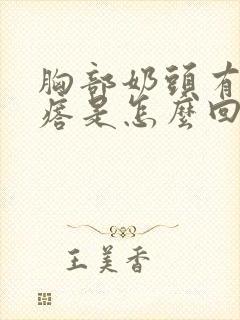 胸部奶頭有
痞是怎麼回
王美香